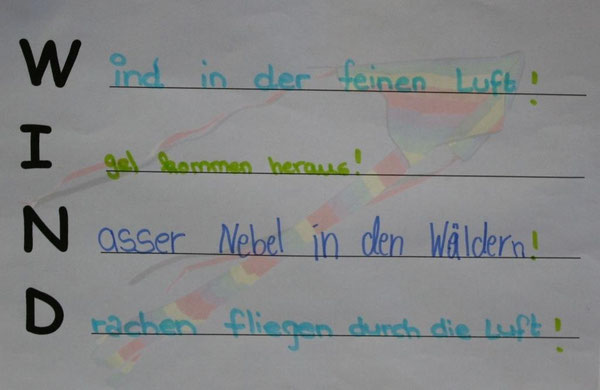 Wind in der feinen Luft!
Igel kommen heraus!
Nasser Nebel in den Wäldern!
Drachen fliegen durch die Luft!